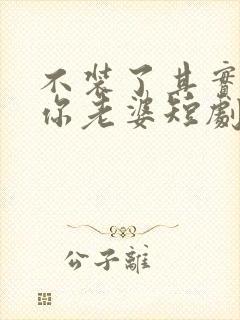 不装了其實
你老婆短劇
公子離